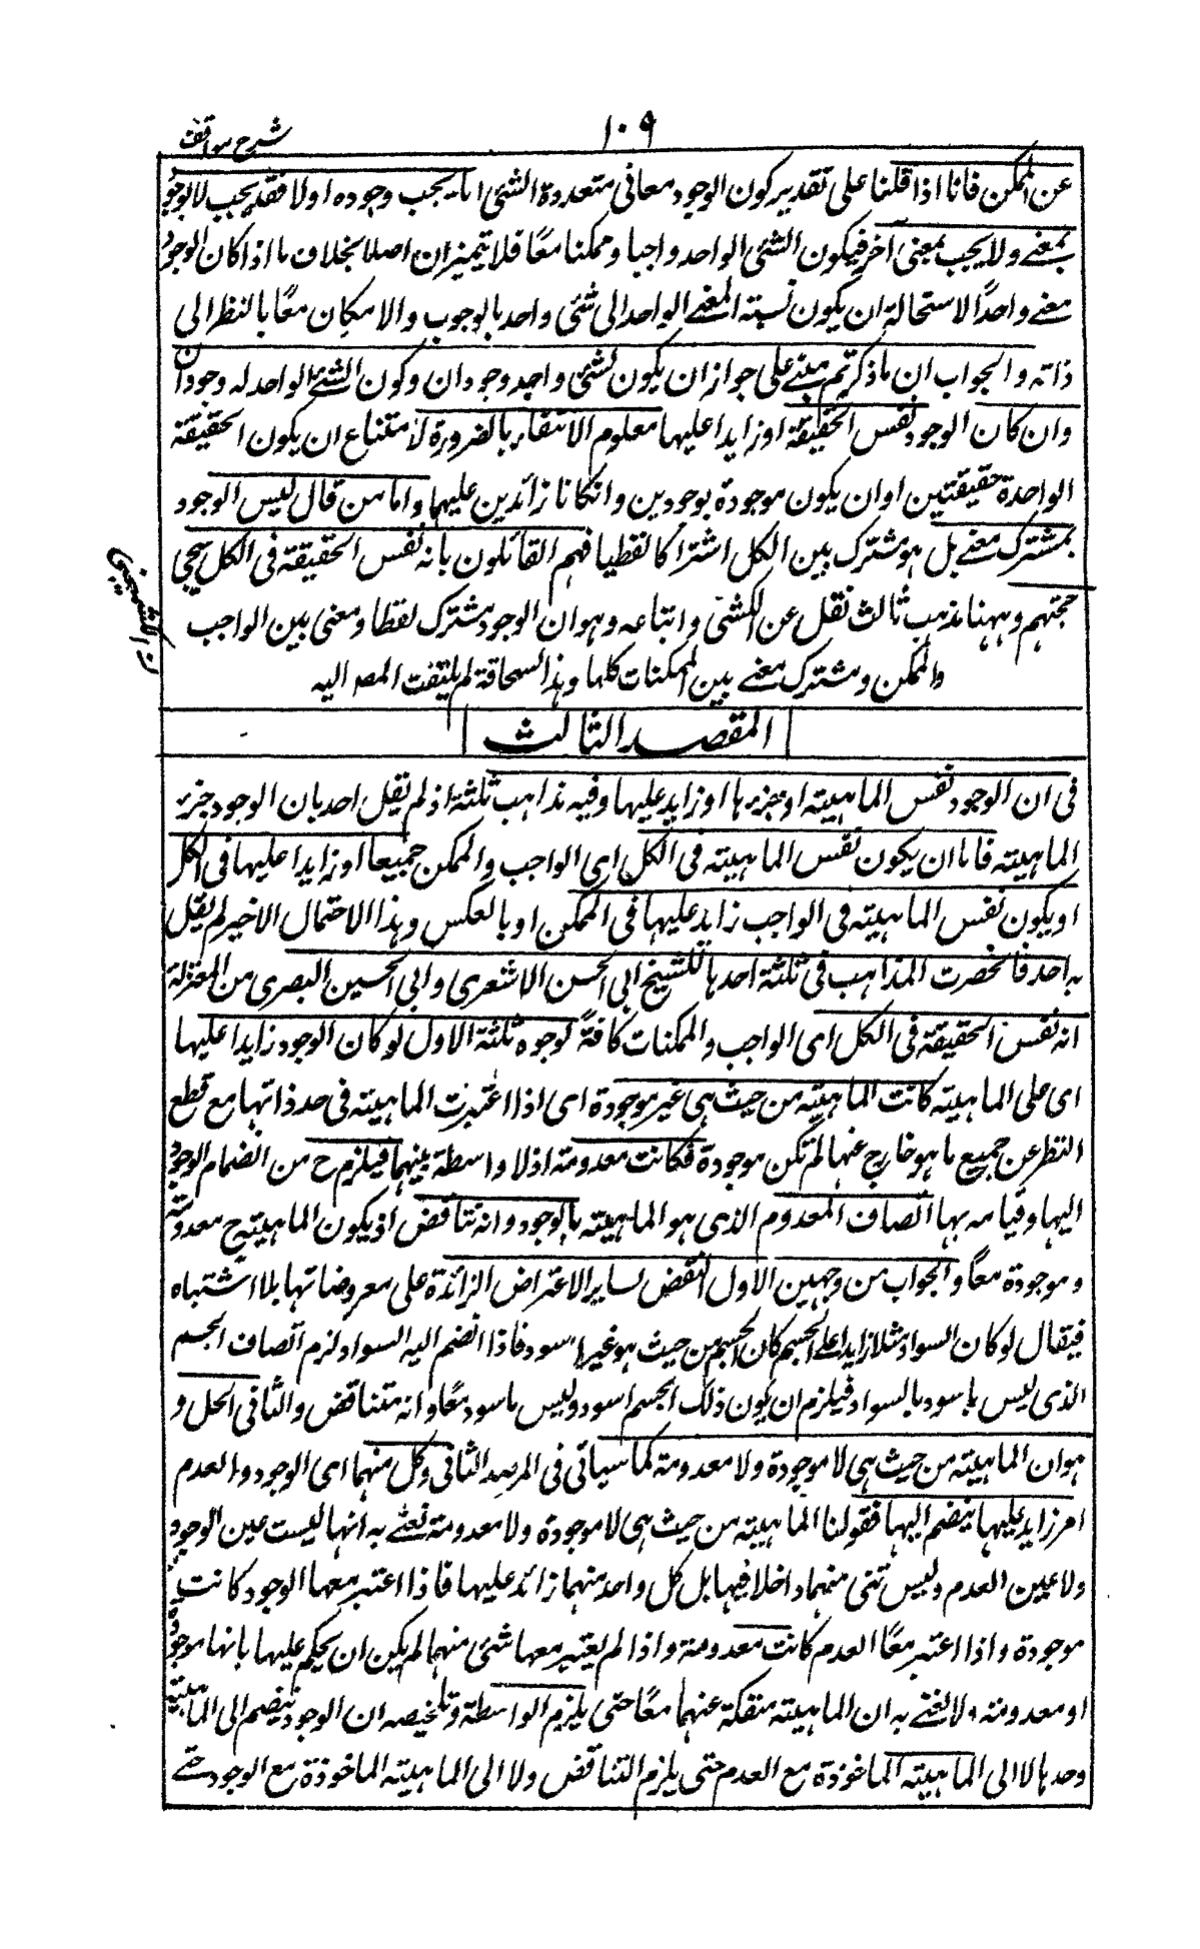 ١٠٩
شرح مواقف
عن الممكن فانا اذا قلنا على تقدير كون الوجود معانى متعددة الشئ اما يجب وجوده اولا فقد يجب له الوجود
بمعنے ولا يجب بمعنى آخر فيكون الشئ الواحد واجبا وممكنا معًا فلا يتميزان اصلا بخلاف ما اذا كان الوجود
معنے واحدًا لاستحالة ان يكون نسبته المعنے الواحد الى شئ واحد بالوجوب والامكان معًا بالنظر الى
ذاته والجواب ان ما ذكرتم مبنے على جواز ان يكون لشئ واحد وجودان وكون الشئ الواحد له وجودان
وان كان الوجود نفس الحقيقة او زايدا عليها معلوم الانتفاء بالضرورة لامتناع ان يكون الحقيقة
الواحدة حقيقتين او ان يكون موجودة بوجودين وانكانا زائدين عليها واما من قال ليس الوجود
بمشترك معنے بل هو مشترك بين الكل اشتراكا لفظيا فهم القائلون بانه نفس الحقيقة فى الكل سيجى
حجتهم وههنا مذهب ثالث نقل عن الكشى واتباعه وهو ان الوجود مشترك لفظا ومعنى بين الواجب
والممكن ومشترك معنے بين الممكنات كلها وهذا لسخافة لم يلتفت المصـ اليه
المقصد الثالث
فى ان الوجود نفس الماهيته او جزءها او زايد عليها وفيه مذاهب ثلثة اذ لم يقل احد بان الوجود جزء
الماهيته فاما ان يكون نفس الماهيته فى الكل اى الواجب والممكن جميعا او زايدا عليها فى الكل
او يكون نفس الماهيته فى الواجب زايد عليها فى الممكن او بالعكس وهذا الاحتمال الاخير لم يقل
به احد فانحصرت المذاهب فى ثلثة احدها للشيخ ابى الحسن الاشعرى وابى الحسين البصرى من المعتزلة
انه نفس الحقيقة فى الكل اى الواجب والممكنات كافة لوجوه ثلثة الاول لو كان الوجود زايدا عليها
اى على الماهيته كانت الماهيته من حيث هى غير موجودة اى اذا اعتبرت الماهيته فى حد ذاتها مع قطع
النظر عن جميع ما هو خارج عنها لم تكن موجودة فكانت معدومته اذ لا واسطة بينهما فيلزم ح من انضمام الوجود
اليها وقيامه بها اتصاف المعدوم الذى هو الماهيته بالوجود وانه تناقض اذ يكون الماهيته ح معدومته
وموجودة معًا والجواب من وجهين الاول النقض لساير الاعتراض الزائدة على معروضاتها بلا اشتباه
فيقال لو كان السواد مثلا زايدا على الجسم كان الجسم من حيث هو غير اسود فاذا انضم اليه السواد لزم اتصاف الجسم
الذى ليس باسود بالسواد فيلزم ان يكون ذلك الجسم اسود وليس باسود معًا وانه متناقض والثانى الحل و
هو ان الماهيته من حيث هى لا موجودة ولا معدومته كما سيأتى فى المرصد الثانى وكل منهما اى الوجود والعدم
امر زايد عليها ينضم اليها فقولنا الماهيته من حيث هى لا موجودة ولا معدومته نعنے به انها ليست عين الوجود
ولا عين العدم وليس شئ منهما داخلا فيها بل كل واحد منهما زائد عليها فاذا اعتبر معها الوجود كانت
موجودة واذا اعتبر معًا العدم كانت معدومته واذا لم يعتبر معها شئ منهما لم يكن ان يحكم عليها بانها موجودة
او معدومته ولا نعنے به ان الماهيته منفكة عنهما معًا حتى يلزم الواسطة وتلخيصه ان الوجود ينضم الى الماهيته
وحدها لا الى الماهيته الماخوذة مع العدم حتى يلزم التناقض ولا الى الماهيته الماخوذة مع الوجود حتے